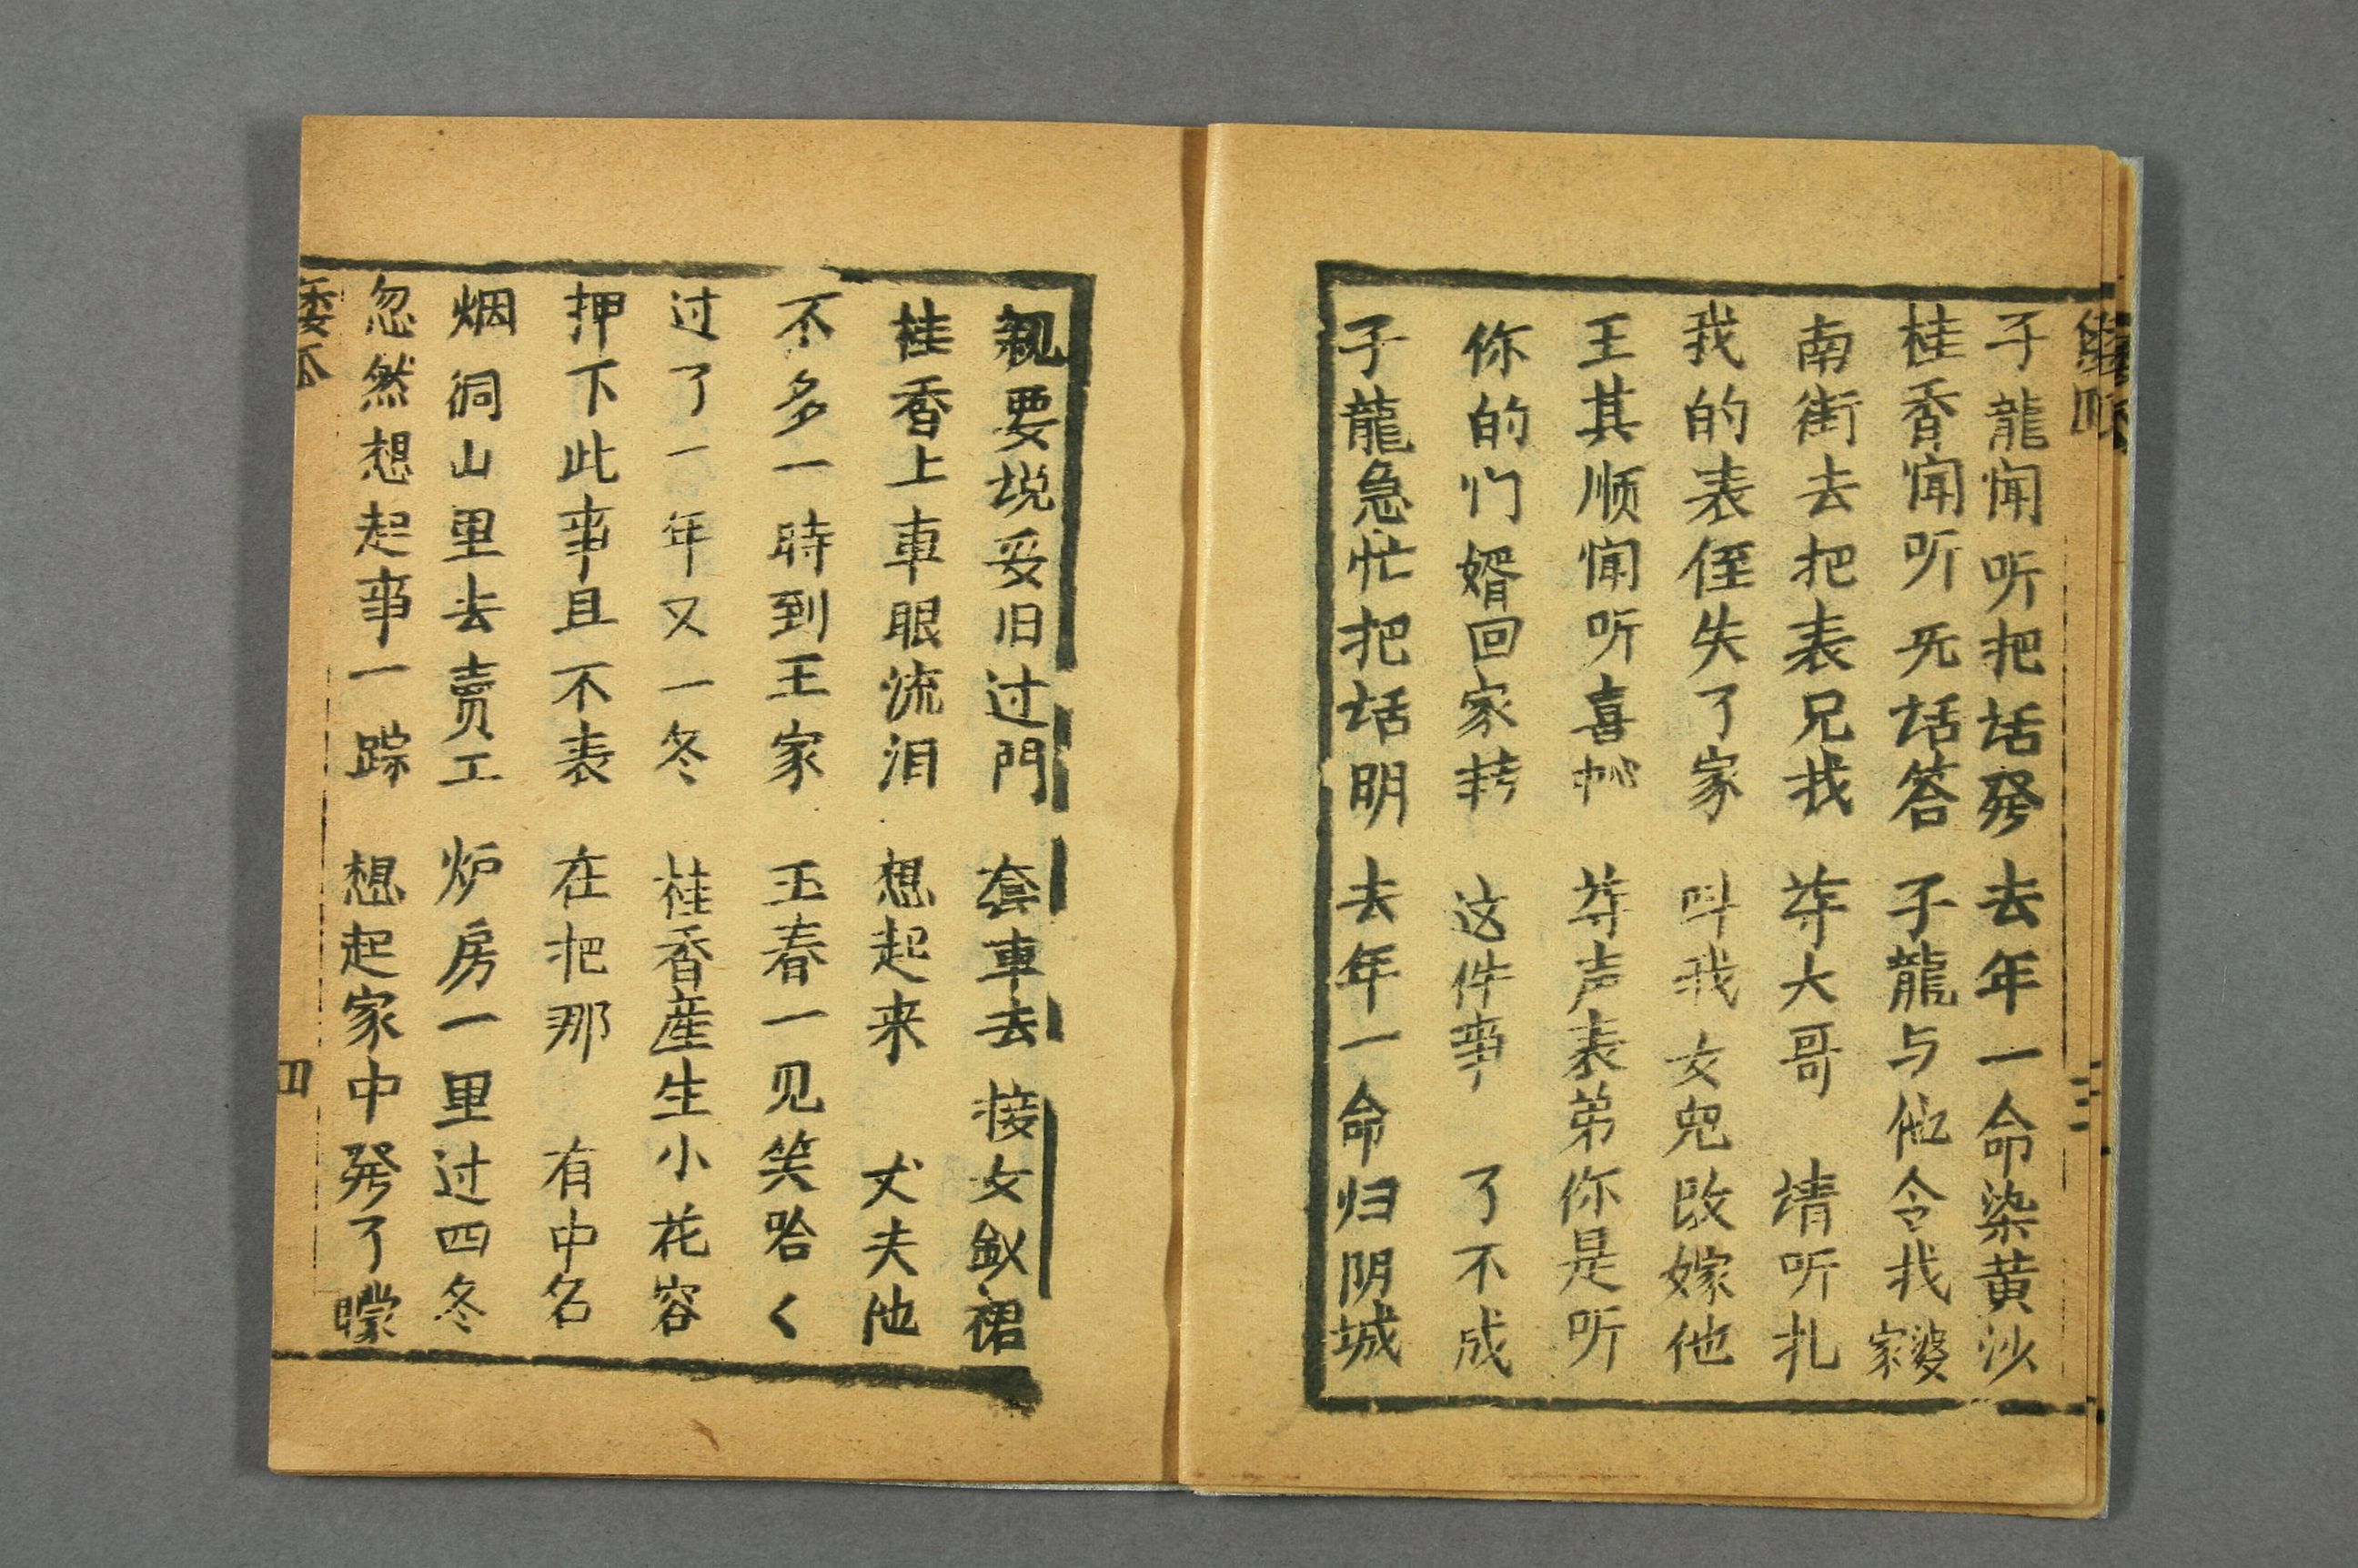 子龍闻听把话発 去年一命染黄沙
桂香闻听死话答 子龍与他令找婆家
南街去把表兄找 尊大哥 请听扎
我的表侄失了家 叫我女兒改嫁他
王其顺闻听喜 尊声表弟你是听
你的门婿回家转 这件事 了不成
子龍急忙把话明 去年一命归阴城
三
親要説妥旧过門 套車去 接女釵裙
桂香上車眼流泪 想起来 丈夫他
不多一時到王家 玉春一见笑哈く
过了一年又一冬 桂香産生小花容
押下此事且不表 在把那 有中名
烟洞山里去卖工 炉房一里过四冬
忽然想起事一踪 想起家中発了曚
四